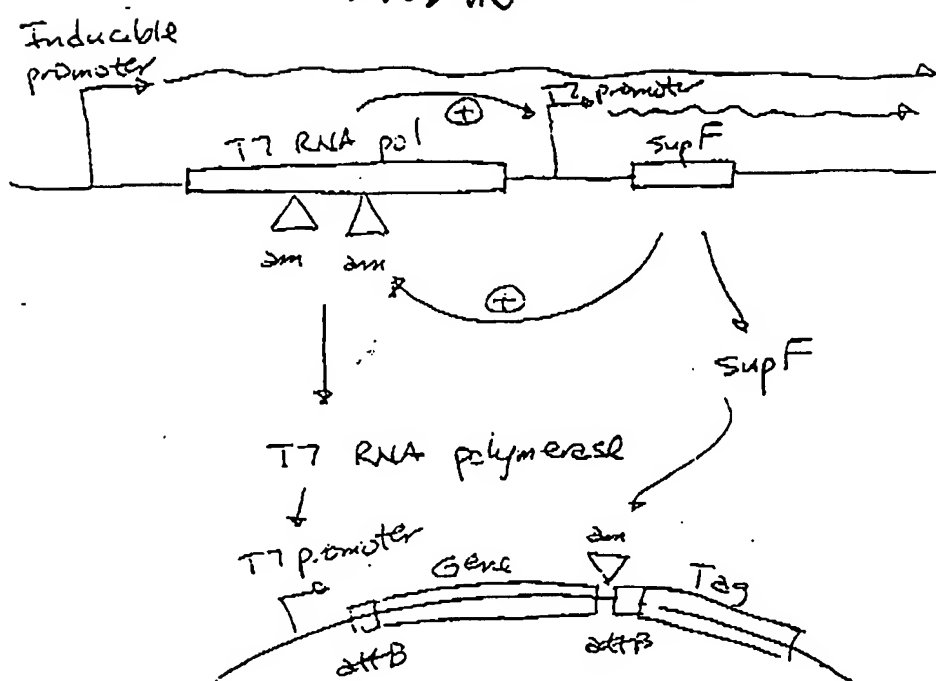 Inducible
promoter
T7 promoter
T7 RNA pol
⊕
supF
am am
⊕
supF
T7 RNA polymerase
T7 promoter
Gene
am
Tag
attB
attB